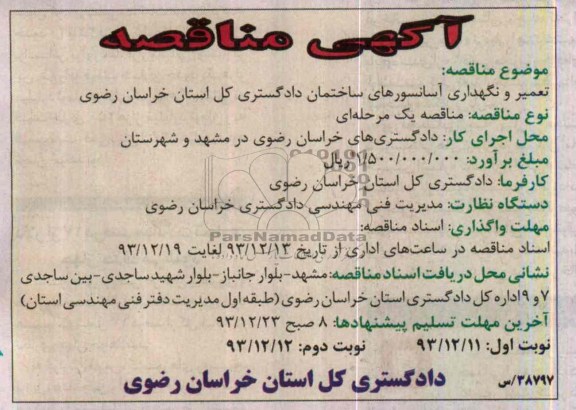 آگهی مناقصه
موضوع مناقصه:
تعمیر و نگهداری آسانسورهای ساختمان دادگستری کل استان خراسان رضوی
نوع مناقصه: مناقصه یک مرحله‌ای
محل اجرای کار: دادگستری‌های خراسان رضوی در مشهد و شهرستان
مبلغ برآورد: ۱/۵۰۰/۰۰۰/۰۰۰ ریال
کارفرما: دادگستری کل استان خراسان رضوی
دستگاه نظارت: مدیریت فنی مهندسی دادگستری خراسان رضوی
مهلت واگذاری: اسناد مناقصه:
ParsNamadData
اسناد مناقصه در ساعت‌های اداری از تاریخ ۹۳/۱۲/۱۳ لغایت ۹۳/۱۲/۱۹
نشانی محل دریافت اسناد مناقصه: مشهد-بلوار جانباز-بلوار شهید ساجدی-بین ساجدی
۷ و ۹ اداره کل دادگستری استان خراسان رضوی (طبقه اول مدیریت دفتر فنی مهندسی استان)
آخرین مهلت تسلیم پیشنهادها: ۸ صبح ۹۳/۱۲/۲۳
نوبت اول: ۹۳/۱۲/۱۱ نوبت دوم: ۹۳/۱۲/۱۲
۳۸۷۹۷/س دادگستری کل استان خراسان رضوی